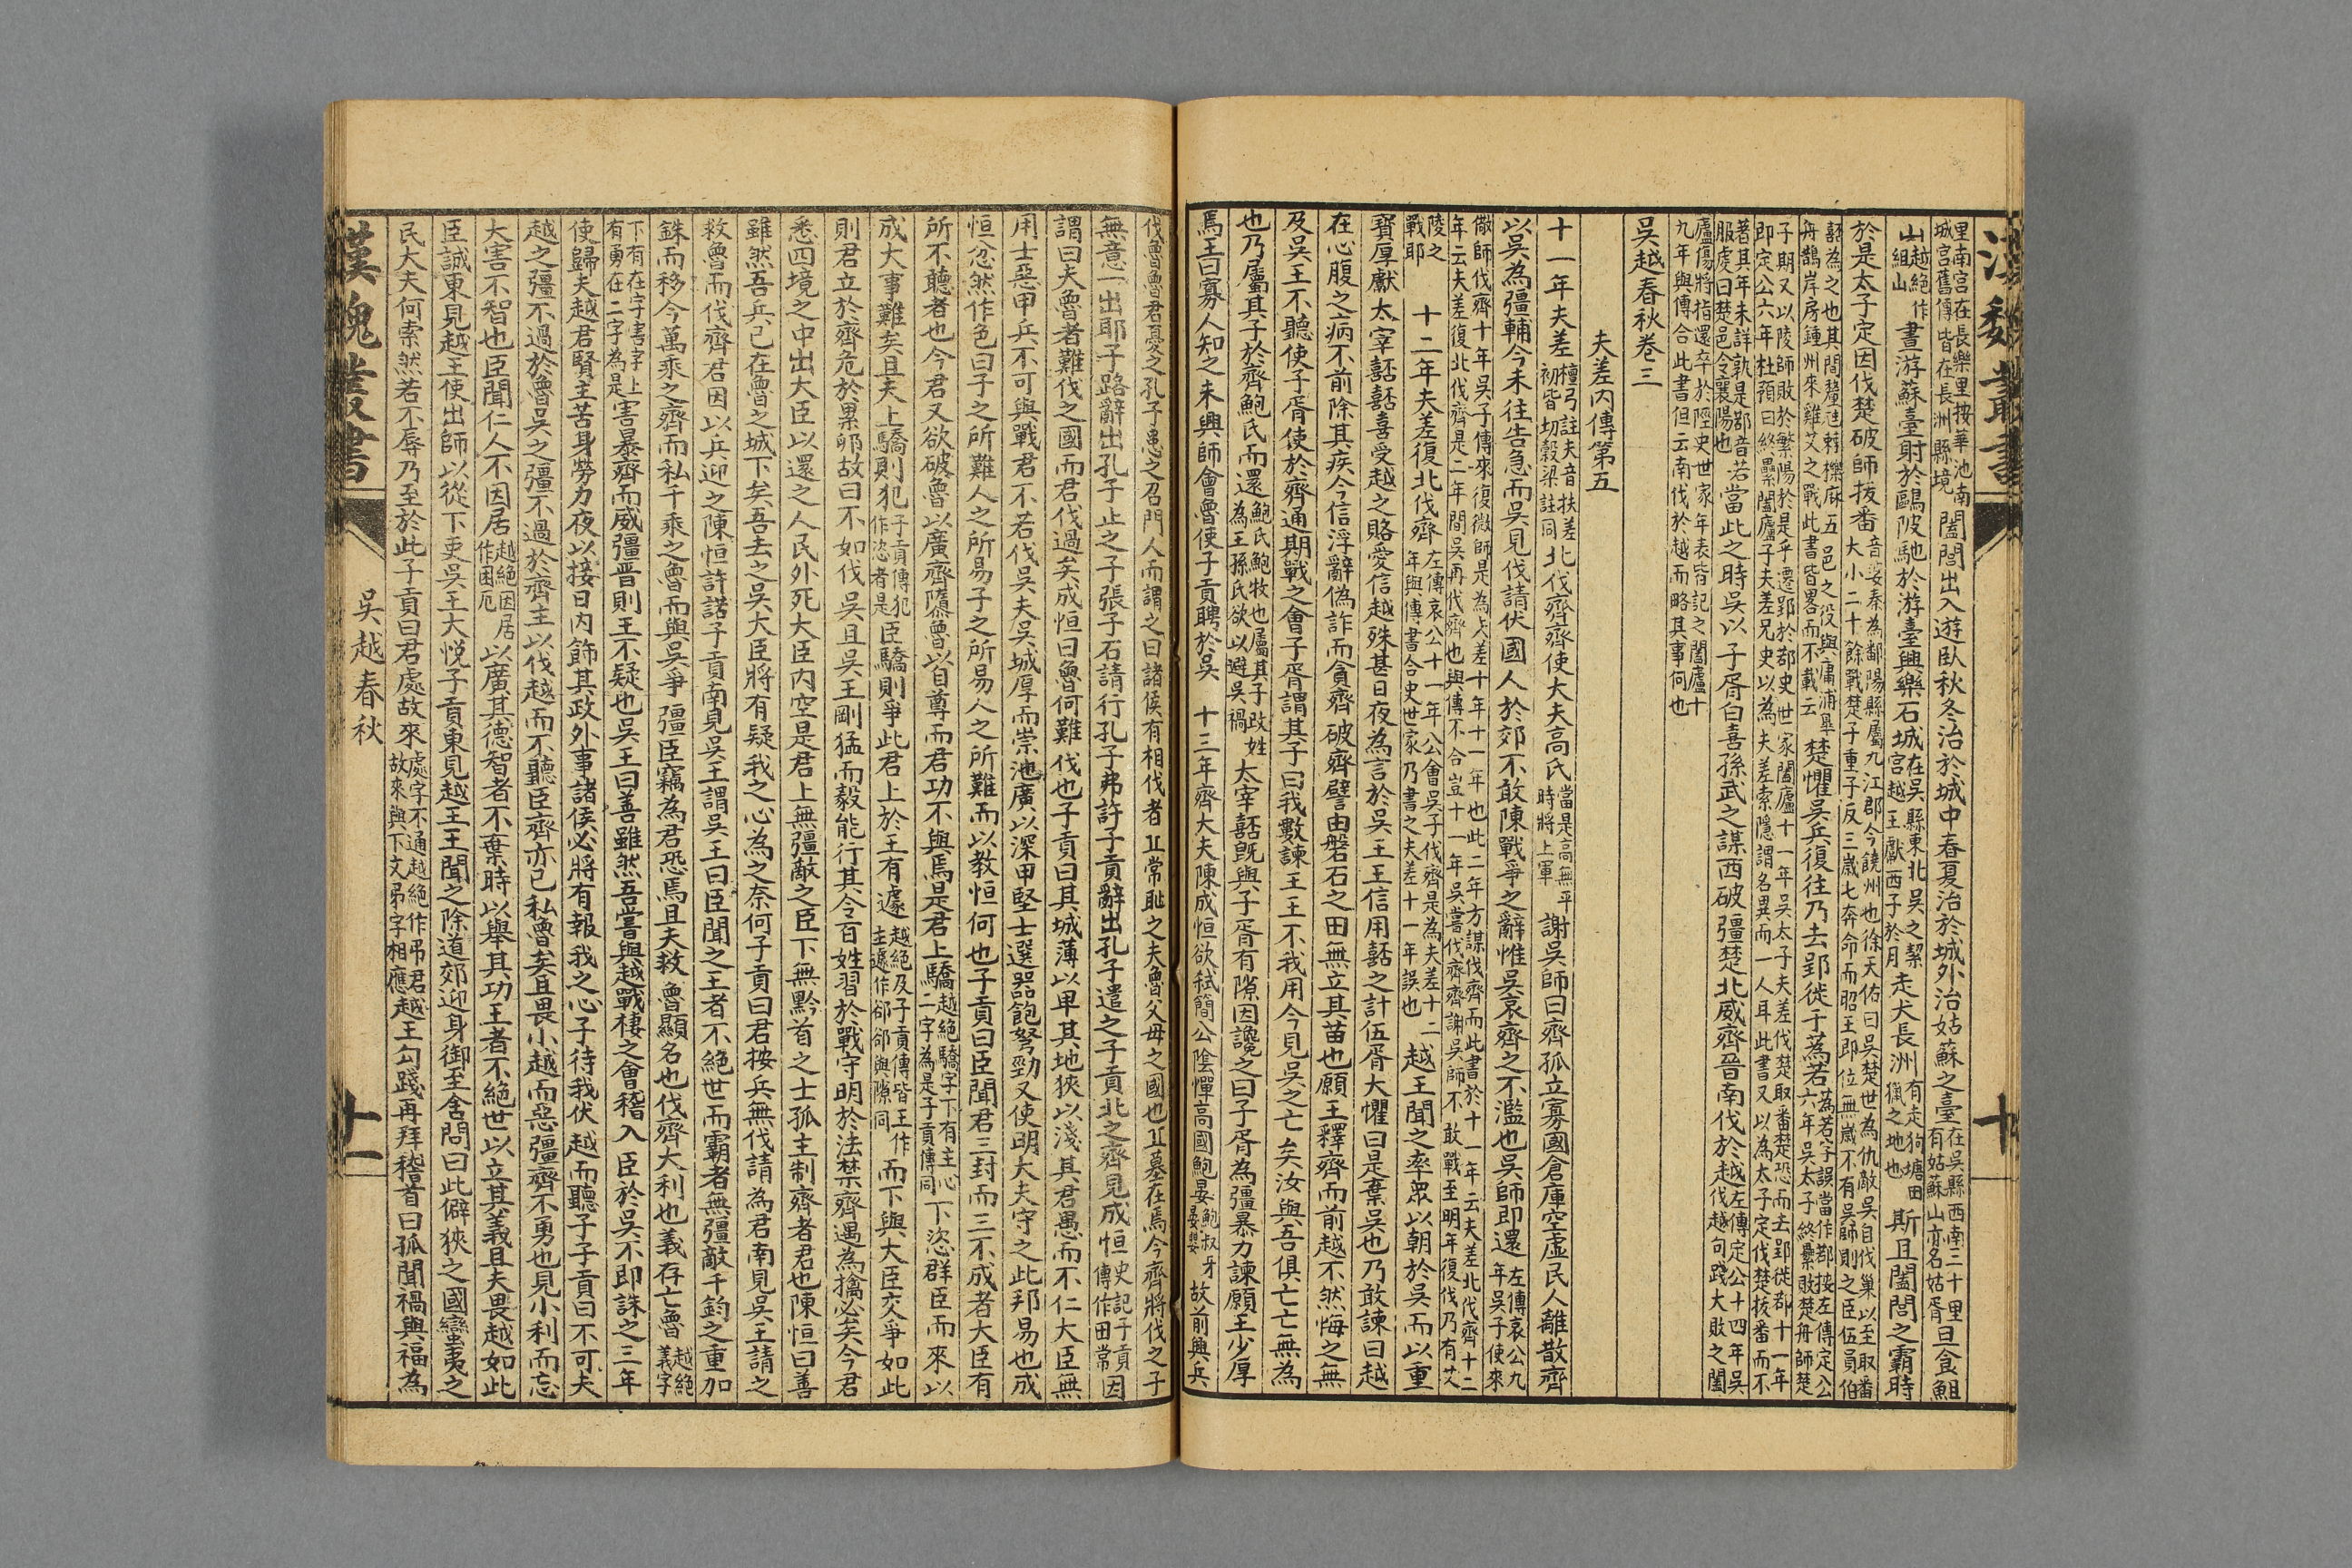 里南宮在長樂里按華池南城宮舊傳皆在長洲縣境闔閭出入遊臥秋冬治於城中春夏治於城外治姑蘇之臺在吳縣西南三十里有姑蘇山亦名姑胥旦食䱉
山越絕作組山晝游蘇臺射於鷗陂馳於游臺興樂石城在吳縣東北吳之絜宮越王獻西子於月走犬長洲有走狗塘田獵之地也斯且闔閭之霸時
於是太子定因伐楚破師拔番音婆秦為鄱陽縣屬九江郡今饒州也徐天佑曰吳楚世為仇敵吳自伐巢以至取番大小二十餘戰楚子重子反三歲七奔命而昭王即位無歲不有吳師則之臣伍員伯
嚭為之也其間釐虺轑櫟麻五邑之役與庸浦皋舟鵲岸房鍾州來雞父之戰此書皆畧而不載云楚懼吳兵復往乃去郢徙于蒍若蒍若字誤當作鄀按左傳定公六年吳太子終纍敗楚舟師楚
子期又以陵師敗於繁陽於是乎遷郢於鄀史世家闔廬十一年吳太子夫差伐楚取番楚恐而去郢徙鄀十一年即定公六年杜預曰終纍闔廬子夫差兄史以為夫差索隱謂名異而一人耳此書又以為太子定伐楚拔番而不
著其年未詳孰是鄀音若服虔曰楚邑今襄陽也當此之時吳以子胥白喜孫武之謀西破彊楚北威齊晉南伐於越左傳定公十四年吳伐越句踐大敗之闔
廬傷將指還卒於陘史世家年表皆記之闔廬十九年與傳合此書但云南伐於越而略其事何也
吳越春秋卷三
夫差內傳第五
十一年夫差檀弓註夫音扶差初皆切穀梁註同北伐齊齊使大夫高氏當是高無平時將上軍謝吳師曰齊孤立寡國倉庫空虛民人離散齊
以吳為彊輔今未往告急而吳見伐請伏國人於郊不敢陳戰爭之辭惟吳哀齊之不濫也吳師即還左傳哀公九年吳子使來
儆師伐齊十年吳子傳來復儆師是為夫差十年十一年也此二年方謀伐齊而此書於十一年云夫差北伐齊十二年云夫差復北伐齊是二年間吳再伐齊也與傳不合豈十一年吳嘗伐齊齊謝吳師不敢戰至明年復伐乃有艾
陵之戰耶 十二年夫差復北伐齊左傳哀公十一年公會吳子伐齊是為夫差十二年與傳書合史世家乃書之夫差十一年誤也越王聞之率眾以朝於吳而以重
寶厚獻太宰嚭嚭喜受越之賂愛信越殊甚日夜為言於吳王王信用嚭之計伍胥大懼曰是棄吳也乃敢諫曰越
在心腹之病不前除其疾今信浮辭偽詐而貪齊破齊譬由磐石之田無立其苗也願王釋齊而前越不然悔之無
及吳王不聽使子胥使於齊通期戰之會子胥謂其子曰我數諫王王不我用今見吳之亡矣汝與吾俱亡亡無為
也乃屬其子於齊鮑氏而還鮑氏鮑牧也屬其子改姓為王孫氏欲以避吳禍太宰嚭既與子胥有隙因讒之曰子胥為彊暴力諫願王少厚
焉王曰寡人知之未興師會魯使子貢聘於吳 十三年齊大夫陳成恒欲弒簡公陰憚高國鮑晏鮑叔牙晏嬰故前興兵
漢魏叢書 十
伐魯魯君憂之孔子患之召門人而謂之曰諸侯有相伐者丘常耻之夫魯父母之國也丘墓在焉今齊將伐之子
無意一出耶子路辭出孔子止之子張子石請行孔子弗許子貢辭出孔子遣之子貢北之齊見成恒史記子貢傳作田常因
謂曰夫魯者難伐之國而君伐過矣成恒曰魯何難伐也子貢曰其城薄以卑其池狹以淺其君愚而不仁大臣無
用士惡甲兵不可與戰君不若伐吳夫吳城厚而崇池廣以深甲堅士選器飽弩勁又使明大夫守之此邦易也成
恒忿然作色曰子之所難人之所易子之所易人之所難而以教恒何也子貢曰臣聞君三封而三不成者大臣有
所不聽者也今君又欲破魯以廣齊隳魯以自尊而君功不與焉是君上驕越絕驕字下有主心二字為是子貢傳同下恣群臣而來以
成大事難矣且夫上驕則犯子貢傳犯作恣者是臣驕則爭此君上於王有遽越絕及子貢傳皆王作主遽作郤郤與隙同而下與大臣交爭如此
則君立於齊危於累卵故曰不如伐吳且吳王剛猛而毅能行其令百姓習於戰守明於法禁齊遇為擒必矣今君
悉四境之中出大臣以還之人民外死大臣內空是君上無彊敵之臣下無黔首之士孤主制齊者君也陳恒曰善
雖然吾兵已在魯之城下矣吾去之吳大臣將有疑我之心為之奈何子貢曰君按兵無伐請為君南見吳王請之
救魯而伐齊君因以兵迎之陳恒許諾子貢南見吳王謂吳王曰臣聞之王者不絕世而霸者無彊敵千鈞之重加
銖而移今萬乘之齊而私千乘之魯而與吳爭彊臣竊為君恐焉且夫救魯顯名也伐齊大利也義存亡魯越絕義字
下有在字害字上有勇在二字為是害暴齊而威彊晉則王不疑也吳王曰善雖然吾嘗與越戰棲之會稽入臣於吳不即誅之三年
使歸夫越君賢主苦身勞力夜以接日內飾其政外事諸侯必將有報我之心子待我伏越而聽子子貢曰不可夫
越之彊不過於魯吳之彊不過於齊主以伐越而不聽臣齊亦已私魯矣且畏小越而惡彊齊不勇也見小利而忘
大害不智也臣聞仁人不因居越絕因居作困厄以廣其德智者不棄時以舉其功王者不絕世以立其義且夫畏越如此
臣誠東見越王使出師以從下吏吳王大悅子貢東見越王王聞之除道郊迎身御至舍問曰此僻狹之國蠻夷之
民大夫何索然若不辱乃至於此子貢曰君處故來處字不通越絕作弔君故來與下文弔字相應越王勾踐再拜稽首曰孤聞禍與福為
漢魏叢書 吳越春秋 十一